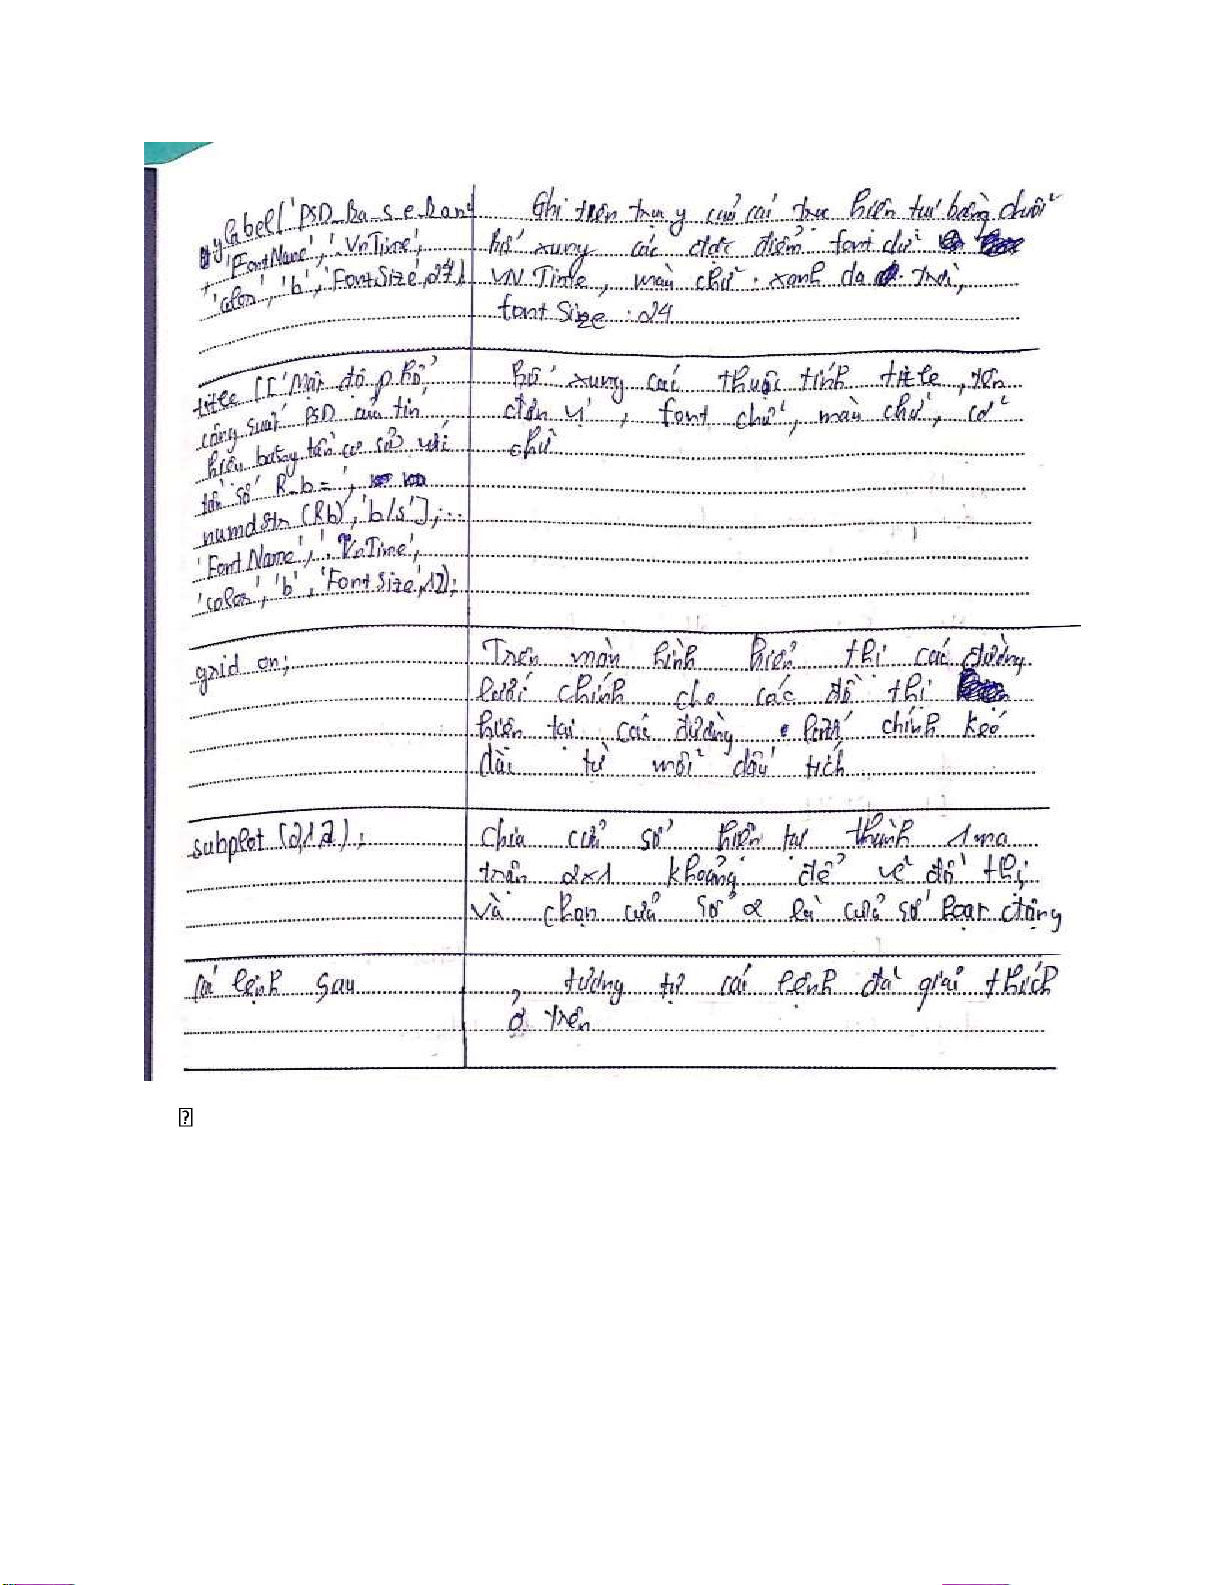 ylabel('PSD_Ba_s_e_ban
'FontName', '.VnTime',
'color', 'b', 'FontSize', 24)
Ghi trên trục y của các trục hiện tại bằng chuỗi
bổ xung các đặc điểm font chữ
VN Time, màu chữ: xanh da trời,
font Size: 24
title (['Mật độ phổ
công suất PSD của tín
hiệu băng tần cơ sở với
tần số R_b=',
num2str (Rb), 'b/s'],...
'FontName', '.VnTime',
'color', 'b', 'FontSize', 12);
bổ xung các thuộc tính title, tên
đơn vị, font chữ, màu chữ, cỡ
chữ
grid on;
Trên màn hình hiển thị các đường
lưới chính cho các đồ thị
hiện tại các đường lưới chính kéo
dài từ mỗi dấu tích
subplot (2,1,2);
Chia cửa sổ hiện tại thành 1 ma
trận 2x1 khoảng để vẽ đồ thị
và chọn cửa sổ 2 là cửa sổ hoạt động
Các lệnh sau
tương tự các lệnh đã giải thích
ở trên